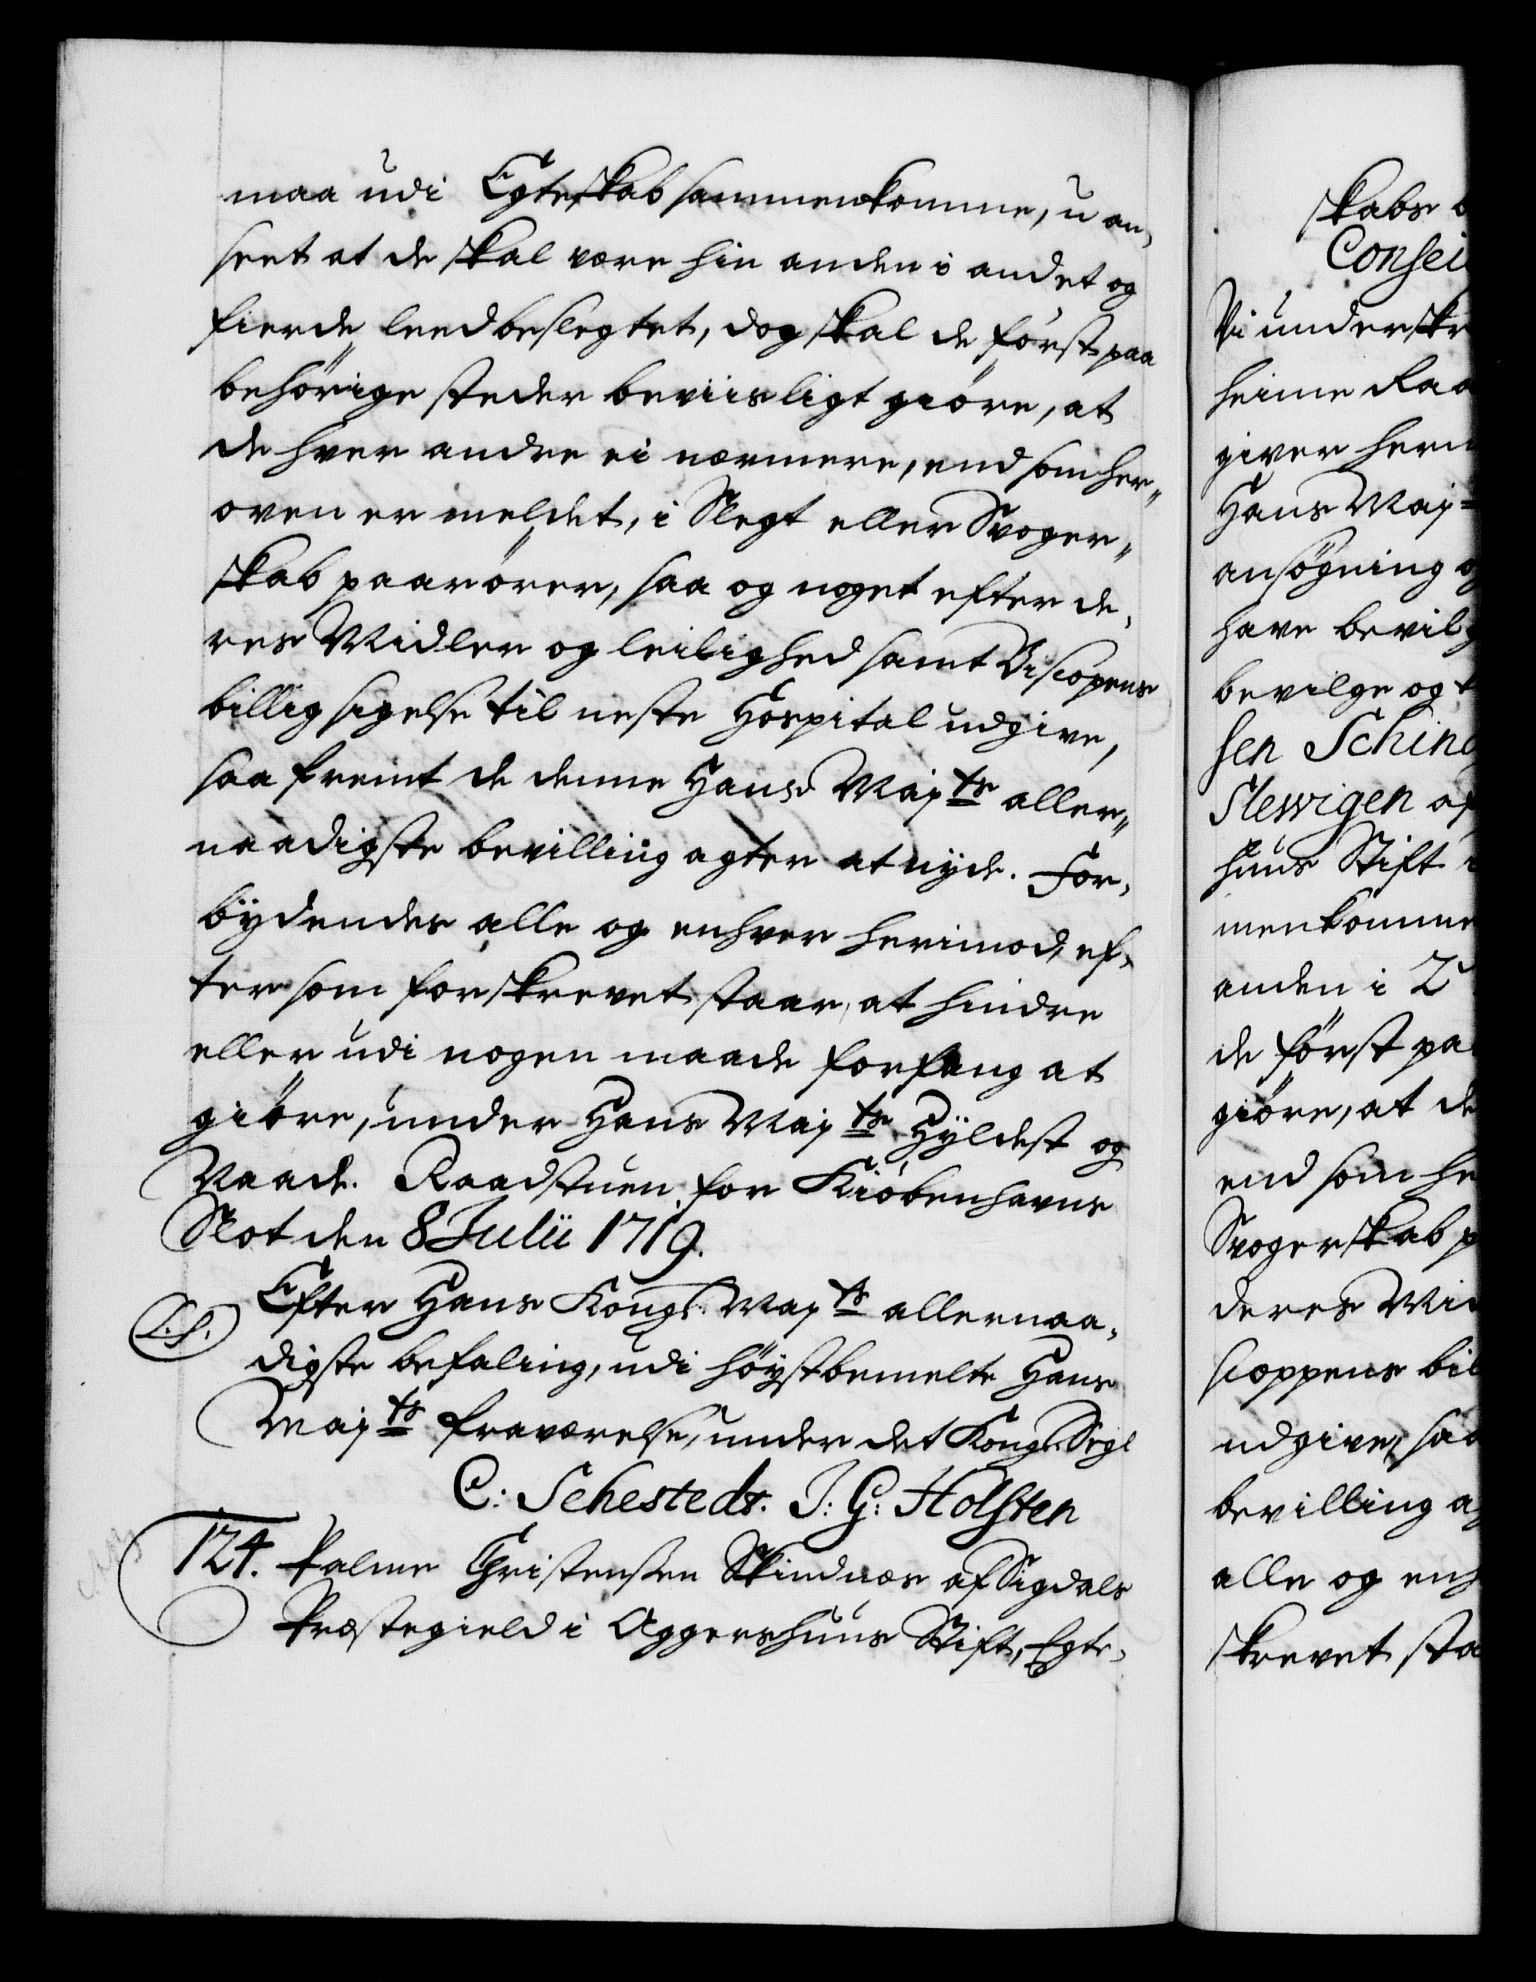 maa udi Egteskab sammenkomme, u an,
seet at de skal være hin anden i andet og
fierde leed beslegtet, dog skal de först paa
behörige steder beviisligt giöre, at
de hver andre ei nærmere, end som her„
oven er meldet, i Slegt eller Svoger„
skab paarörer, saa og noget efter de,
res Midler og leilighed samt Biscopens
billig sigelse til neste Hospital udgive,
saa fremt de denne Hans Maj<sup>ts</sup> aller„
naadigste bevilling agter at nyde. For,
bÿdendes alle og enhver herimod, ef,
ter som forskrevet staar, at hindre
eller udi nogen maade forfang at
giöre, under Hans Maj<sup>ts</sup> Hÿldest og
Naade. Raadstuen for Kiöbenhavns
Slot den 8 Julii 1719.
Efter Hans Kong: Maj<sup>ts</sup> allernaa,
L.S.
digste befaling, udi höÿstbemelte Hans
Maj<sup>ts</sup> fraværelse, under det Kong: Segl
C: Sehestedt. J: G: Holsten
124. Palme Christensen Skindnæs af Sigdals
Præstegield i Aggershuus Stift, Egte,
skabs
Consei
Vi underskr
heime Raa
giver herm
Hans Maj=
ansögning o
have bevilg
bevilge og t
sen Schin
Slewigen af
huus Stift
menkomme
anden i 2
de först pa
giöre, at de
end som he
Svogerskab p
deres Mi
scoppens bil
udgive, saa
bevilling a
alle og enh
skrevet sta